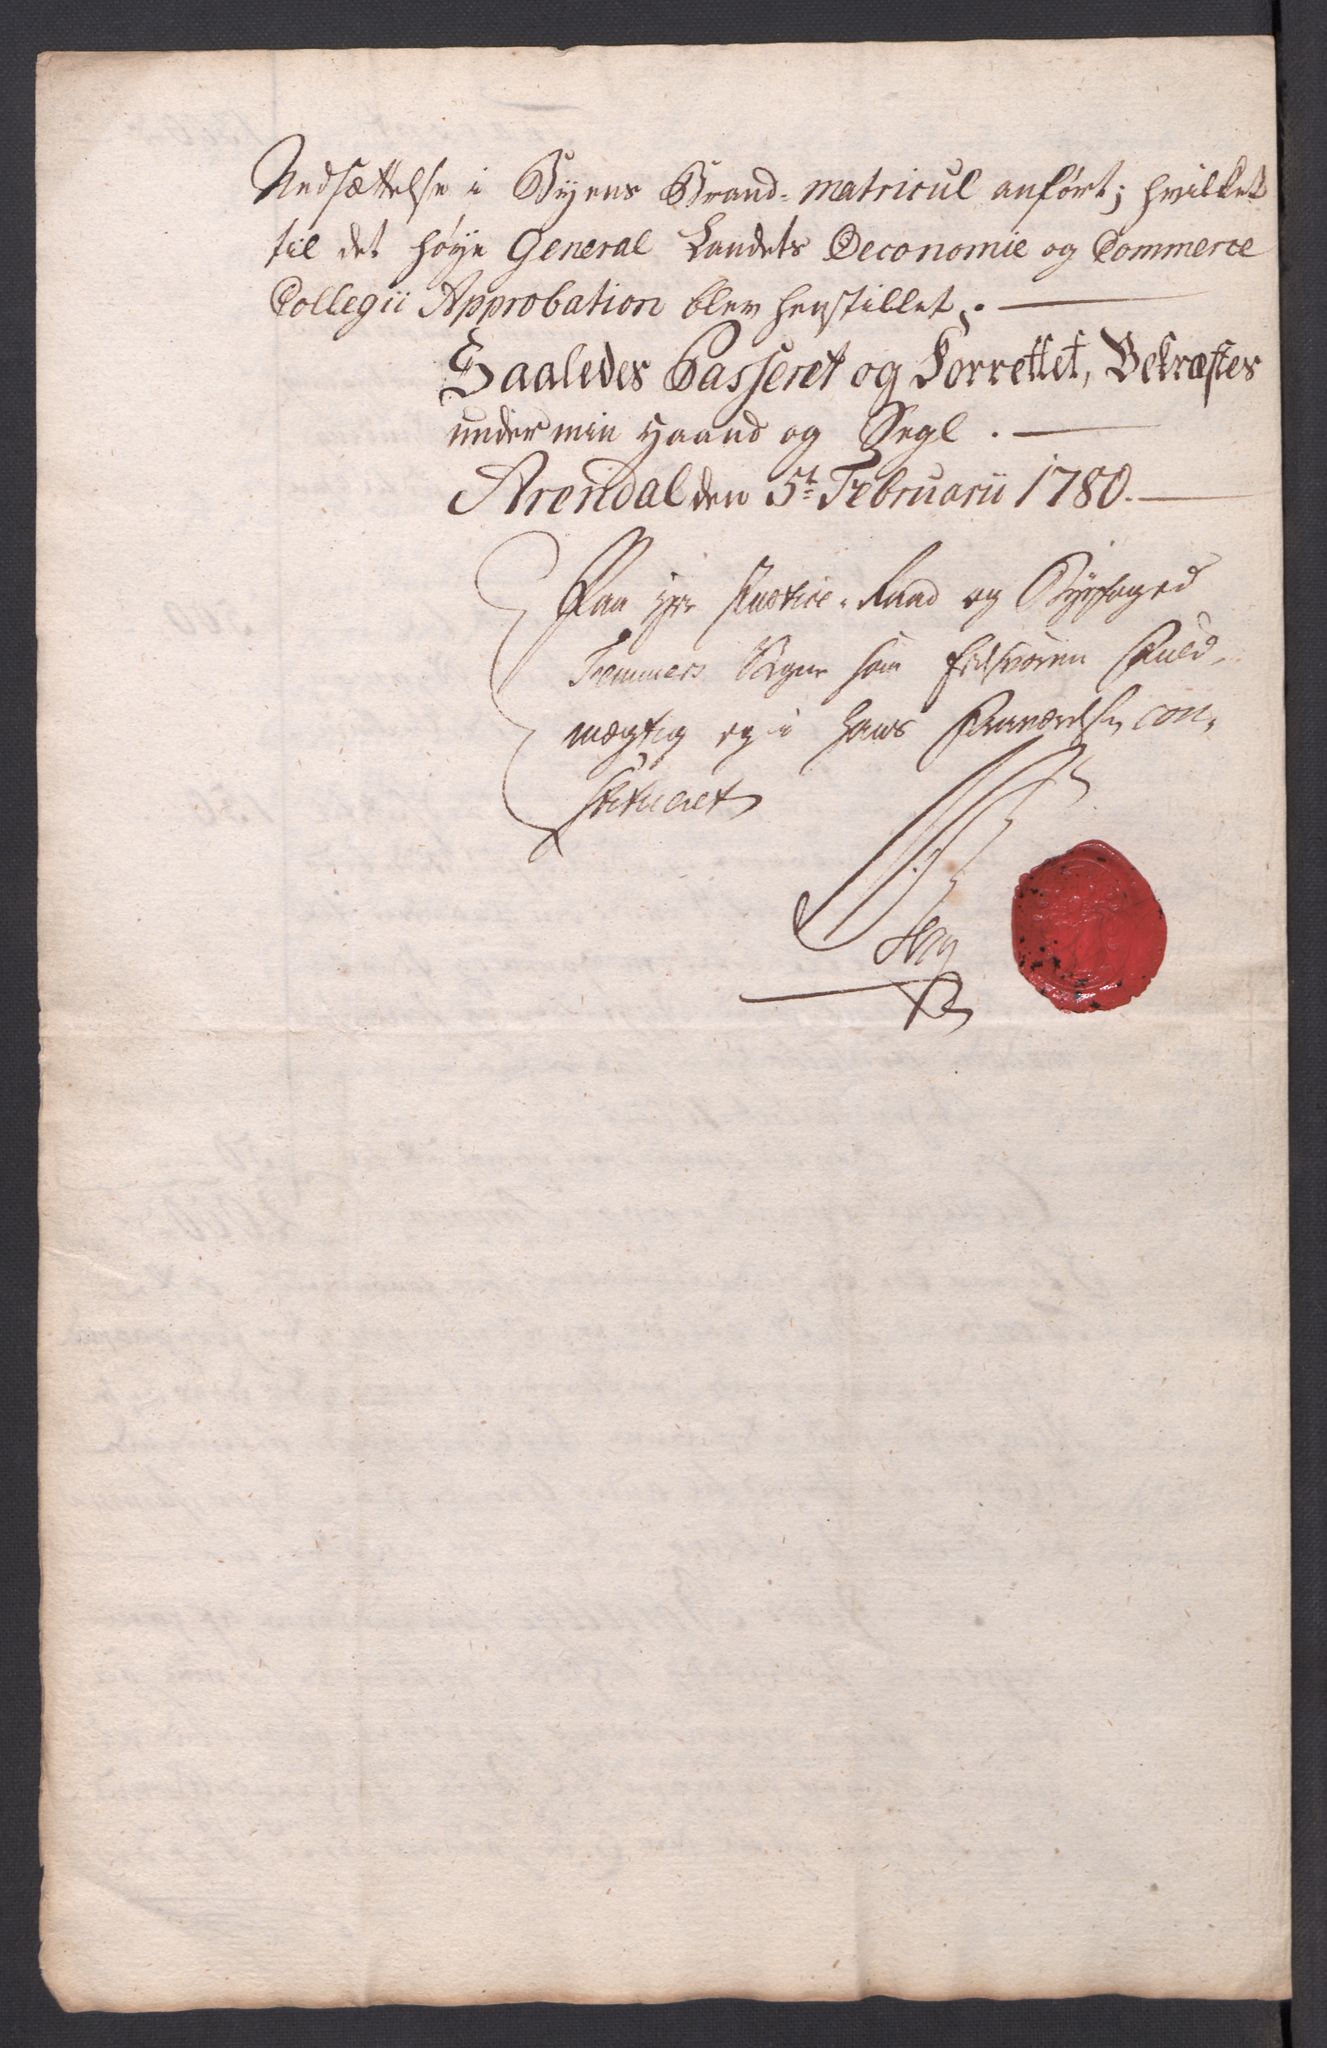 Nedsættelse i Byens Brand-matricul anført; hvilket
til det høye General Landets Oeconomie og Commerce
Collegii Approbation blev henstillet. —
Saaledes Passeret og Forrettet, Bekræftes
under min Haand og Segl. —
Arendal den 5t Februarii 1780. —
Paa Hr Justice-Raad og Byefoged
Vegne som Edsvoren Fuld-
mægtig og i hans Fraværelse con-
stitueret